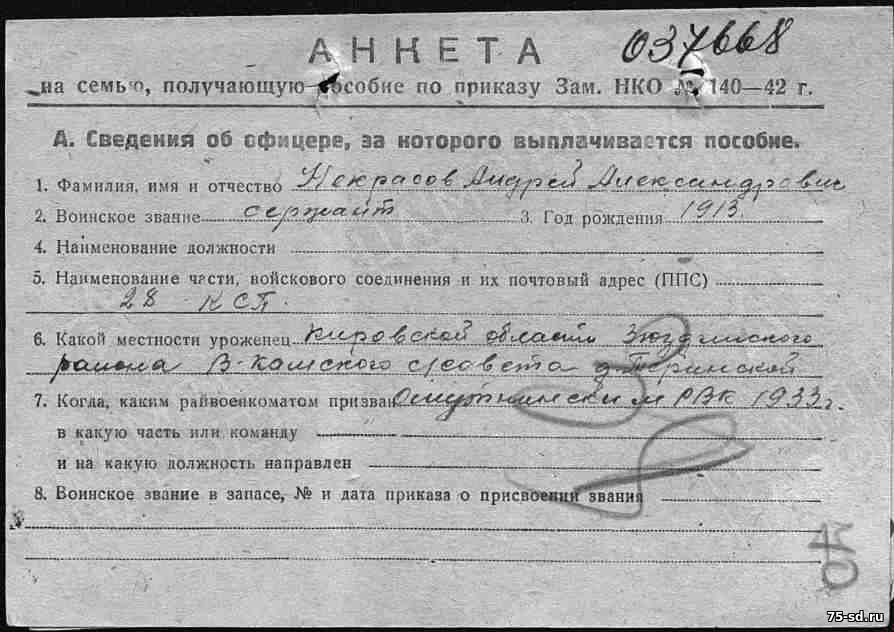 АНКЕТА 037668
на семью, получающую пособие по приказу Зам. НКО № 140—42 г.
А. Сведения об офицере, за которого выплачивается пособие.
1. Фамилия, имя и отчество Некрасов Андрей Александрович
2. Воинское звание сержант 3. Год рождения 1913
4. Наименование должности
5. Наименование части, войскового соединения и их почтовый адрес (ППС)
28 КСП.
6. Какой местности уроженец Кировской области Зюздинского
района В-Камского с/совета д.
7. Когда, каким райвоенкоматом призван Омутнинским РВК 1933 г.
в какую часть или команду
и на какую должность направлен
8. Воинское звание в запасе, № и дата приказа о присвоении звания
40
75-sd.ru